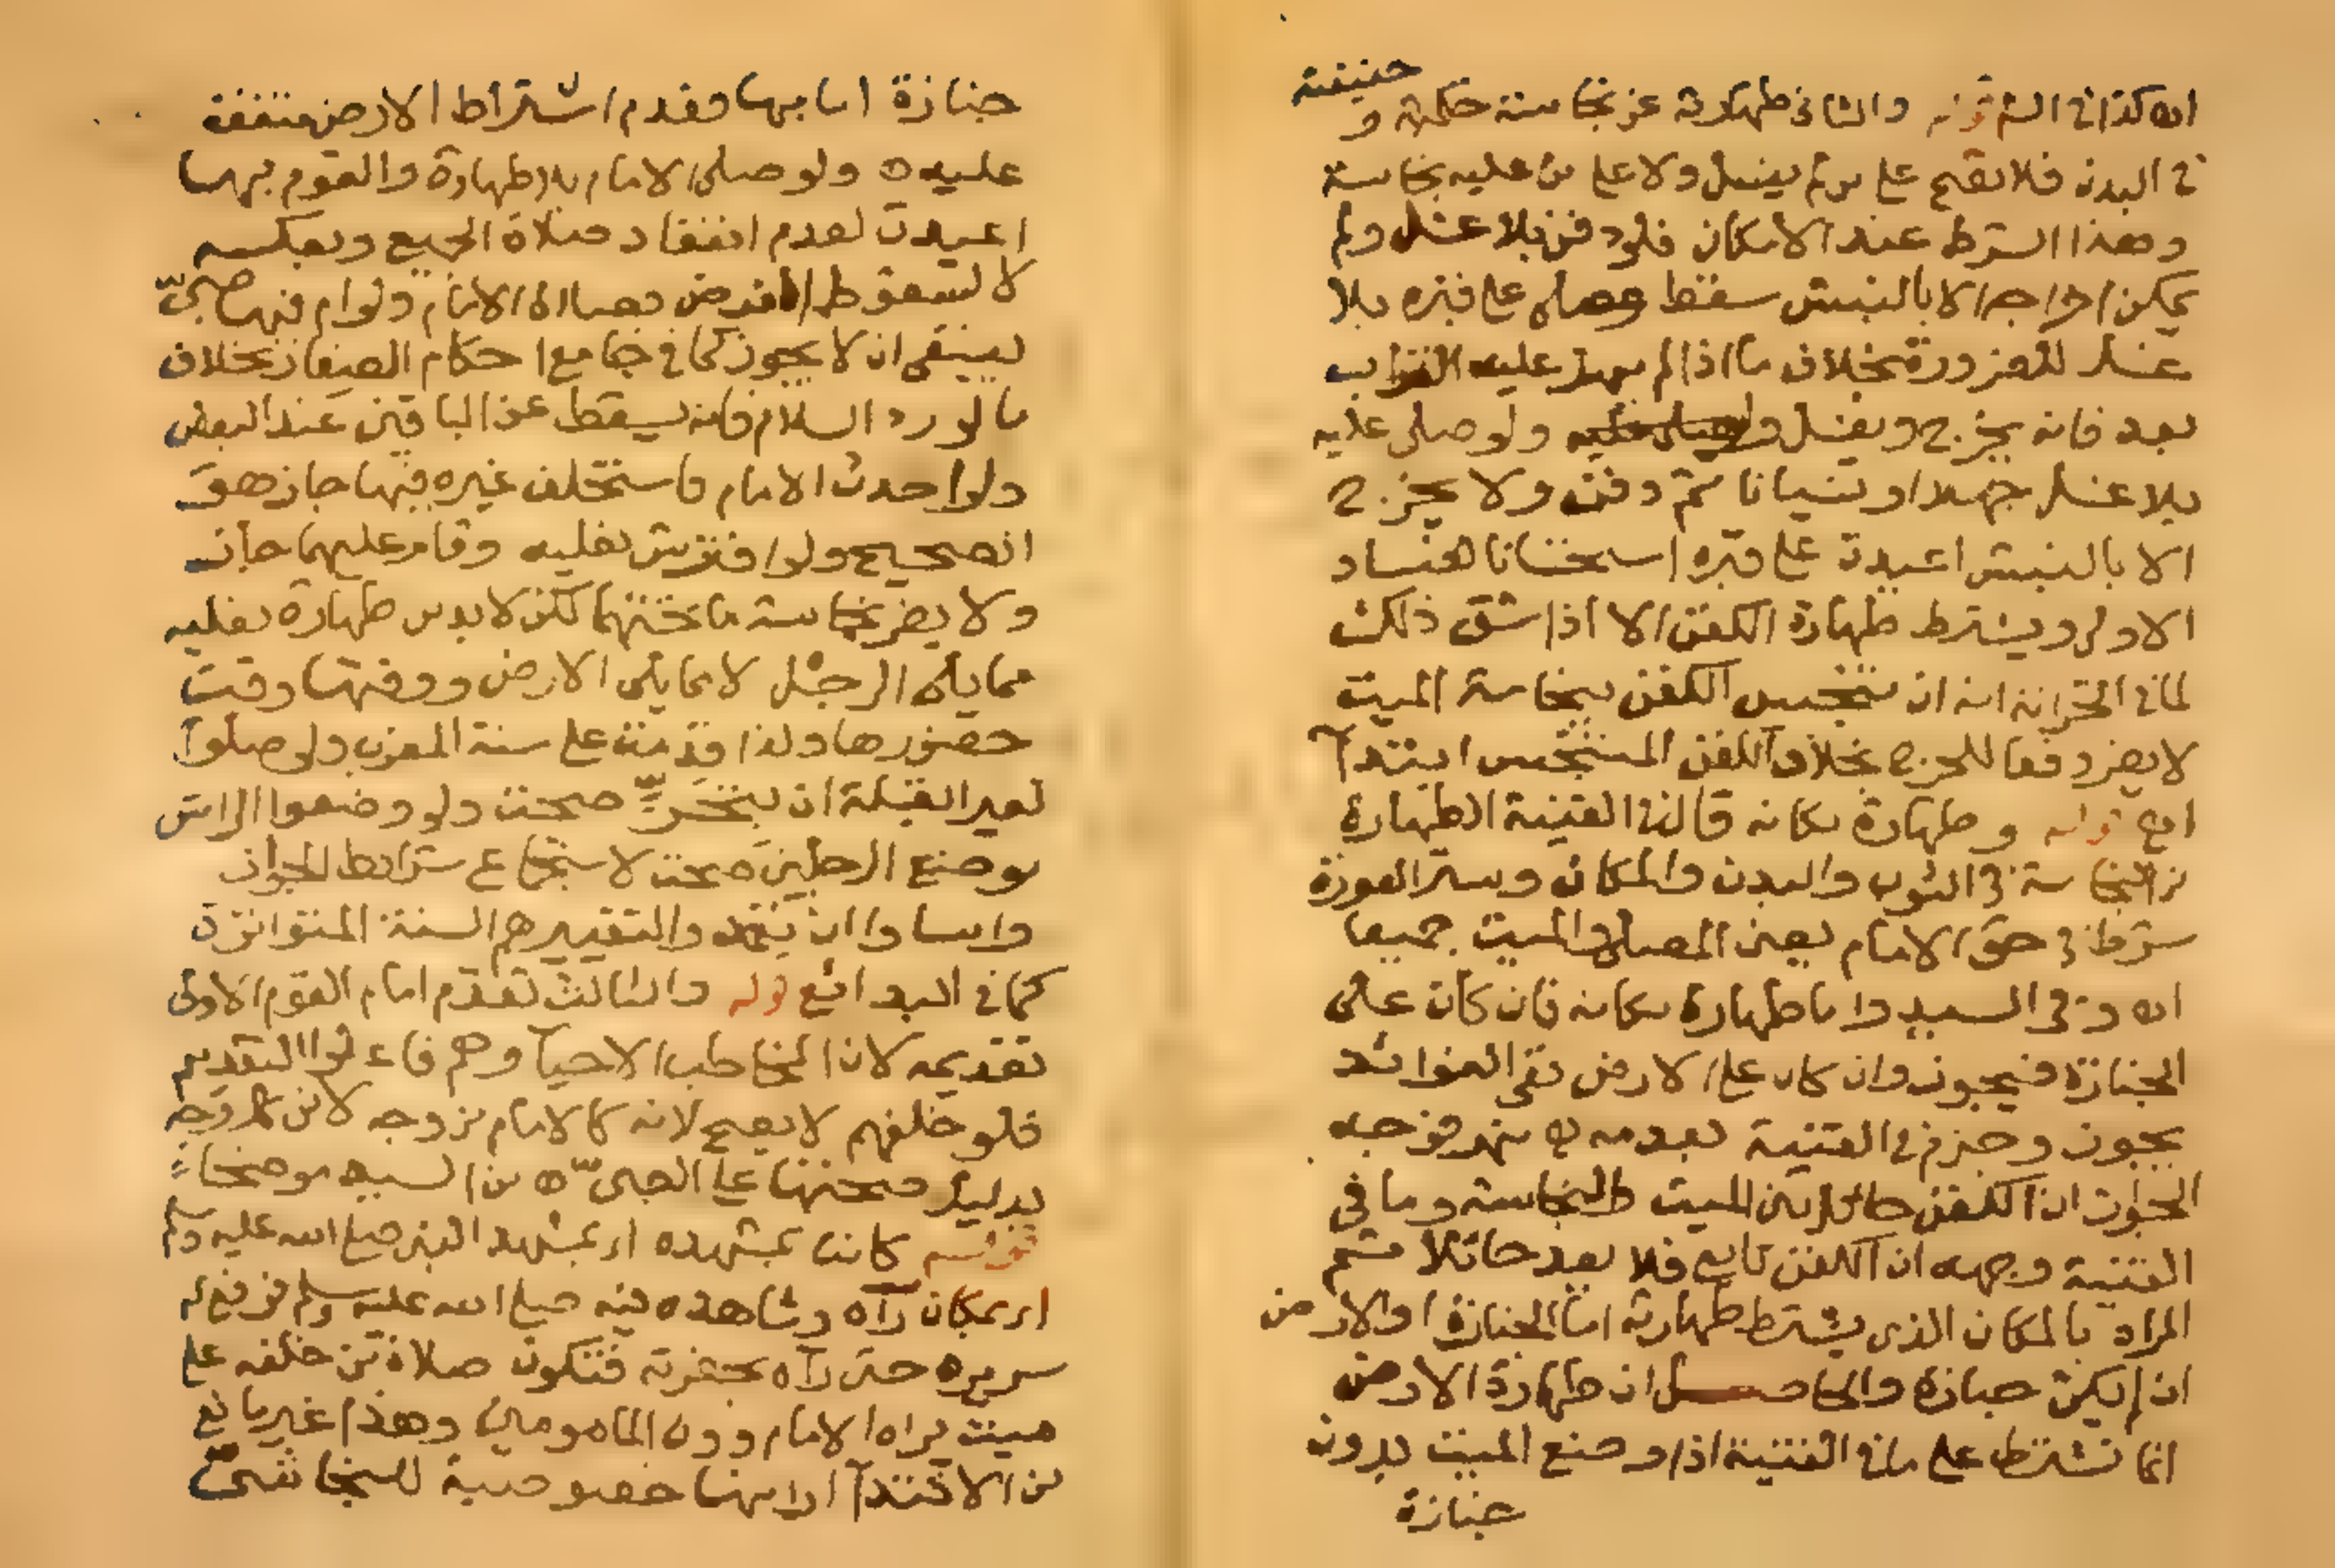 اه كذا في الشر قوله والثاني طهارته عن نجاسة حكمية و حقيقية
في البدن فلا تصح على من لم يغسل ولا على من عليه نجاسة
وهذا الشرط عند الامكان فلو دفن بلا غسل ولم
يمكن اخراجه الا بالنبش سقط وصلى على قبره بلا
غسل للضرورة بخلاف ما اذا لم يهل عليه التراب
بعد فانه يخرج ويغسل ولو صلى عليه
بلا غسل جهلا او نسيانا ثم دفن ولا يخرج
الا بالنبش اعيدت على قبره استحسانا لفساد
الاولى ويشترط طهارة الكفن الا اذا شق ذلك
لما في الخزانة انه ان تنجس الكفن بنجاسة الميت
لا يضر دفعا للحرج بخلاف الكفن المتنجس ابتدآ
اه قوله وطهارة مكانه قال في القنية الطهارة
من النجاسة في الثوب والبدن والمكان وستر العورة
شرط في حق الامام يعني المصلى والميت جميعا
اه وفي السيد واما طهارة مكانه فان كان على
الجنازة فيجوز وان كان على الارض ففي الفوائد
يجوز وجزم في القنية بعدمه فوجه
الجواز ان الكفن حائل بين الميت والنجاسة وما في
القنية وجهه ان الكفن تابع فلا يعد حائلا ثم
المراد بالمكان الذى يشترط طهارته اما الجنازة او الارض
ان لم يكن جنازة والحاصل ان طهارة الارض
انما تشترط على ما في القنية اذا وضع الميت بدون
جنازة
جنازة اما بها فعدم اشتراط الارض متفق
عليه ه ولو صلى الامام بلا طهارة والقوم بها
اعيدت لعدم انعقاد صلاة الجميع وبعكسه
لا لسقوط الفرض بصلاة الامام ولو ام فيها صبي
ينبغي ان لا يجوز كما في جامع احكام الصغار بخلاف
ما لو رد السلام فانه يسقط عن الباقين عند البعض
ولو احدث الامام فاستخلف غيره فيها جاز هو
الصحيح ولو افترش نعليه وقام عليهما جاز
ولا يضر نجاسة ما تحتهما لكن لا بد من طهارة نعليه
مما يلي الرجل لا مما يلي الارض ووقتها وقت
حضورها ولذا قدمت على سنة المغرب ولو صلوا
لغير القبلة ان بتحر صحت ولو وضعوا الراس
موضع الرجلين صحت لاستجماع شرائط الجواز
واساوا ان تعمد والتغييرهم السنة المتوارثة
كما في البدائع قوله والثالث تقدم امام القوم الاولى
تقديمه لان المخاطب الاحيآ وهم فاعلوا التقديم
فلو خلفهم لا يصح لانه كالامام من وجه لا من كل وجه
بدليل صحتها على الصبي ه من السيد موضحا
قوله كانت بمشهده اى بمشهد النبي صلى الله عليه وسلم
اى بمكان رآه وشاهده فيه صلى الله عليه وسلم فرفع له
سريره حتى رآه بحضرته فتكون صلاة من خلفه على
ميت يراه الامام دون المامومين وهذا غير مانع
من الاقتدآ او انها خصوصية للنجاشي